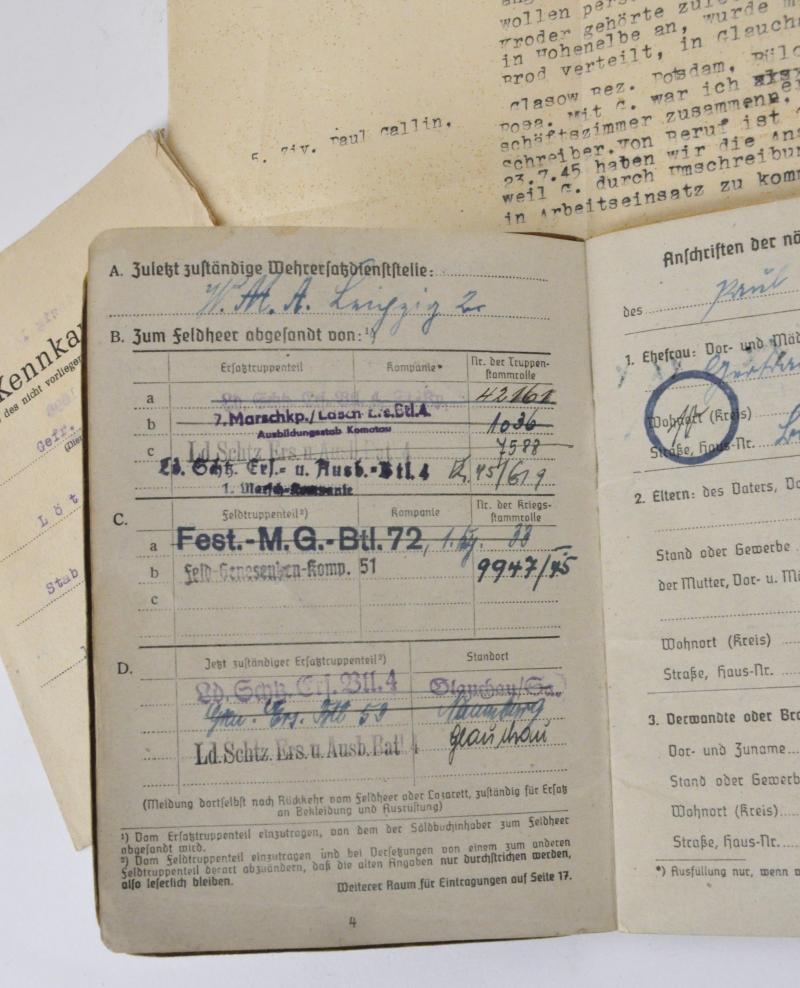 wollen pers
kroder gehörte zu
in Hohenelbe an, wurde m
Brod verteilt, in Glaucha
Glasow Bez. Potsdam,
Rosa. Mit G. war ich
schäftszimmer zusammenn.
schreiber. Von Beruf ist
23.7.45 haben wir die An
weil G. durch Umschreibun
in Arbeitseinsatz zu komm
S. Ziv. Paul Gallin.
Kennka
des nicht vorliegen
Gefr.
Löt
Stab
A. Zuletzt zuständige Wehrersatzdienststelle:
W. M. A. Leipzig 2
B. Zum Feldheer abgesandt von:¹)
Ersatztruppenteil Kompanie* Nr. der Truppen-
stammrolle
a Ld. Schtz. Ers. Btl. 4 42161
b 7. Marschkp./ Ldsch. Ers.Btl.4. 1036
Ausbildungsstab Komotau
c Ld Schtz Ers u Ausb Bat 4 7588
Ld. Schtz. Ers.- u. Ausb.-Btl. 4 45/619
1. Marsch-Kompanie
C. Feldtruppenteil²) Kompanie Nr. der Kriegs-
stammrolle
a Fest.-M.G.-Btl. 72, 38
b Feld-Genesenden-Komp. 51 9947/45
c
D. Jetzt zuständiger Ersatztruppenteil²) Standort
Ld. Schtz. Ers. Btl. 4 Glauchau/Sa.
Gren. Ers. Btl 53 Naumburg
Ld. Schtz. Ers. u. Ausb. Batl 4 Glauchau
(Meldung dortselbst nach Rückkehr vom Feldheer oder Lazarett, zuständig für Ersatz
an Bekleidung und Ausrüstung)
¹) Vom Ersatztruppenteil einzutragen, von dem der Soldbuchinhaber zum Feldheer
abgesandt wird.
²) Vom Feldtruppenteil einzutragen und bei Versetzungen von einem zum anderen
Feldtruppenteil derart abzuändern, daß die alten Angaben nur durchstrichen werden,
also leserlich bleiben. Weiterer Raum für Eintragungen auf Seite 17.
4
Anschriften der nä
des Paul
1. Ehefrau: Vor- und Mäd
Wohnort (Kreis)
Straße, Haus-Nr.
2. Eltern: des Vaters, Vo
Stand oder Gewerbe
der Mutter, Vor- u. Mä
Wohnort (Kreis)
Straße, Haus-Nr.
3. Verwandte oder Bra
Vor- und Zuname
Stand oder Gewerb
Wohnort (Kreis)
Straße, Haus-Nr.
*) Ausfüllung nur, wenn